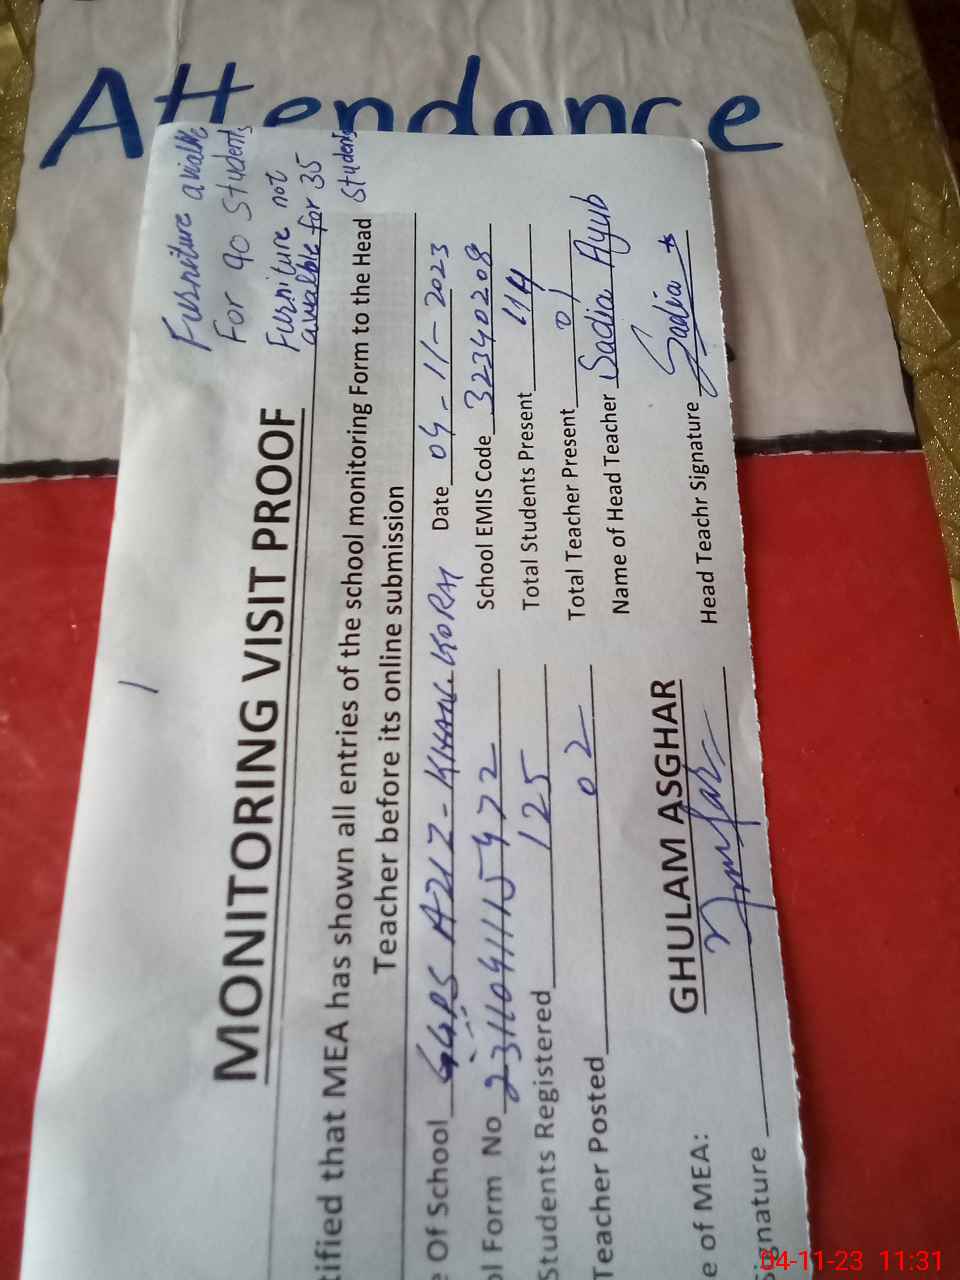 Attendance
Furniture avialble
For 90 Students
Furniture not
available for 35
Students
MONITORING VISIT PROOF
tified that MEA has shown all entries of the school monitoring Form to the Head
Teacher before its online submission
e Of School GGPS AZIZ-KHAN-KORAI Date 04-11-2023
ol Form No School EMIS Code 32340208
Students Registered 125 Total Students Present 114
Teacher Posted 02 Total Teacher Present 01
Name of Head Teacher Sadia Ayub
e of MEA: GHULAM ASGHAR
ignature Head Teachr Signature Sadia
04-11-23 11:31